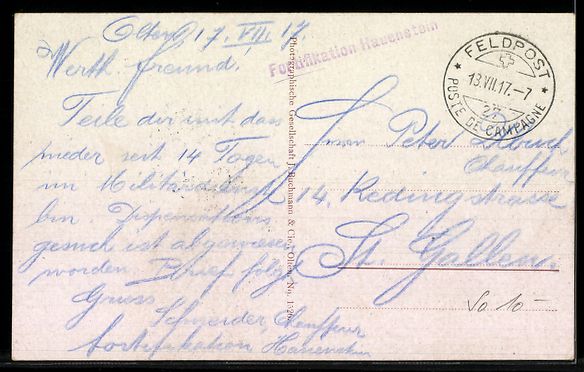 Olten, 17. VII. 17
Werth. freund!
Teile dir mit dass
wieder seit 14 Tagen
im Militärdienst
bin. Dispensations
gesuch ist abgewiesen
worden Brief folgt
Gruss
Schneider Chauffeur
Fortifikation Hauenstein
Fortifikation Hauenstein
FELDPOST
13.VII.17.–7
POSTE DE CAMPAGNE
Photographische Gesellschaft J. Bachmann & Cie, Olten. No. 1526
Herrn Peter
Chauffeur
14, Redingstrasse
St. Gallen.
So 10–